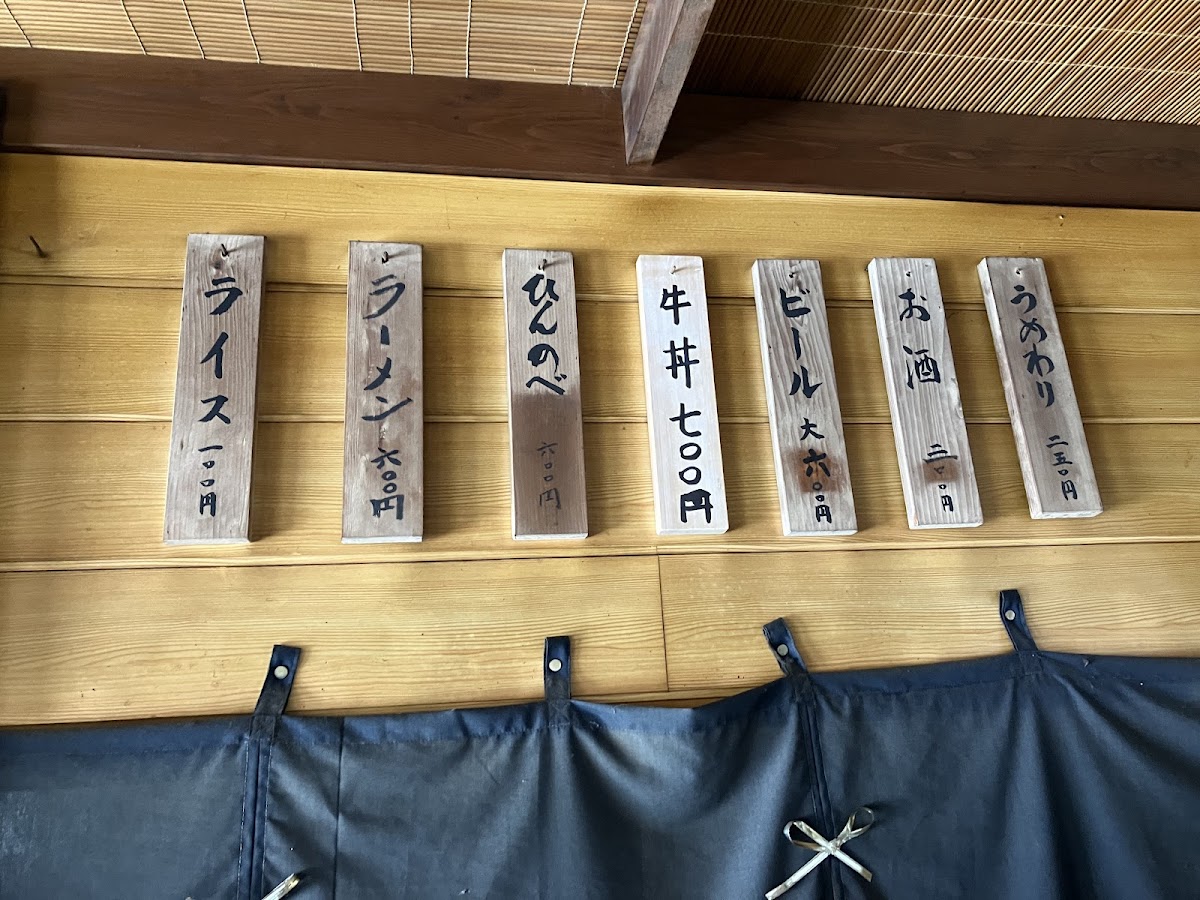 うめわり 二五〇円
お酒 二〇〇円
ビール 大 六〇〇円
牛丼 七〇〇円
ひんのべ 六〇〇円
ラーメン 六〇〇円
ライス 一〇〇円